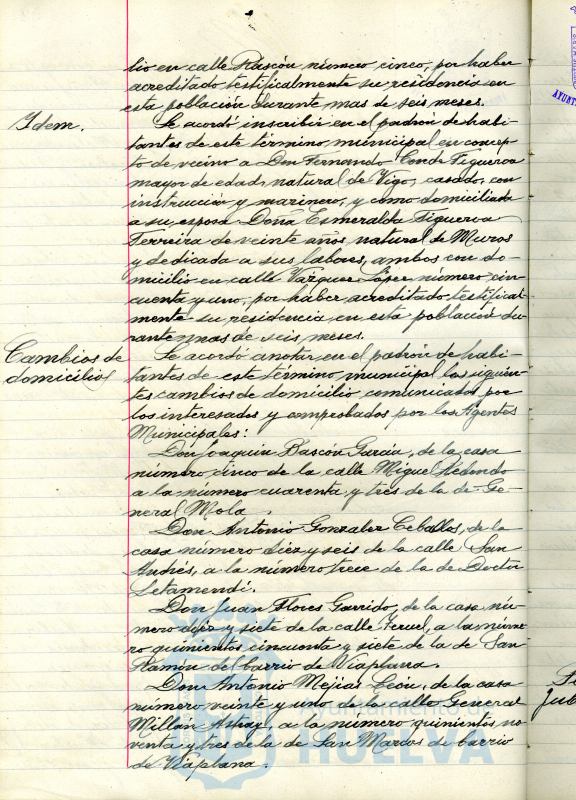 lio en calle Rascón número cinco, por haber
acreditado testificalmente su residencia en
esta población durante mas de seis meses.
Idem.
Se acordó inscribir en el padrón de habi-
tantes de este término municipal en concep-
to de vecino a Don Fernando Conde Figueroa
mayor de edad, natural de Vigo, casado, con
instrucción y marinero, y como domiciliada
a su esposa Doña Esmeralda Figueroa
Ferreira de veinte años, natural de Muros
y dedicada a sus labores, ambos con do-
micilio en calle Vazquez López número cin-
cuenta y uno, por haber acreditado testifical-
mente su residencia en esta población du-
rante mas de seis meses.
Cambios de
domicilio
Se acordó anotar en el padrón de habi-
tantes de este término municipal los siguien-
tes cambios de domicilio comunicados por
los interesados y comprobados por los Agentes
Municipales:
Don Joaquín Bascón García, de la casa
número cinco de la calle Miguel Redondo
a la número cuarenta y tres de la de Ge-
neral Mola.
Don Antonio Gonzalez Ceballos, de la
casa número diez y seis de la calle San
Andrés, a la número trece de la de Doctor
Letamendi.
Don Juan Flores Garrido, de la casa nú-
mero diez y siete de la calle Teruel, a la núme-
ro quinientos cincuenta y siete de la de San
Ramón del barrio de Viaplana.
Don Antonio Mejias León, de la casa
número veinte y uno de la calle General
Millán Astray, a la número quinientos no-
venta y tres de la de San Marcos de barrio
de Viaplana.
Ayuntamiento de
HUELVA
AYUNT